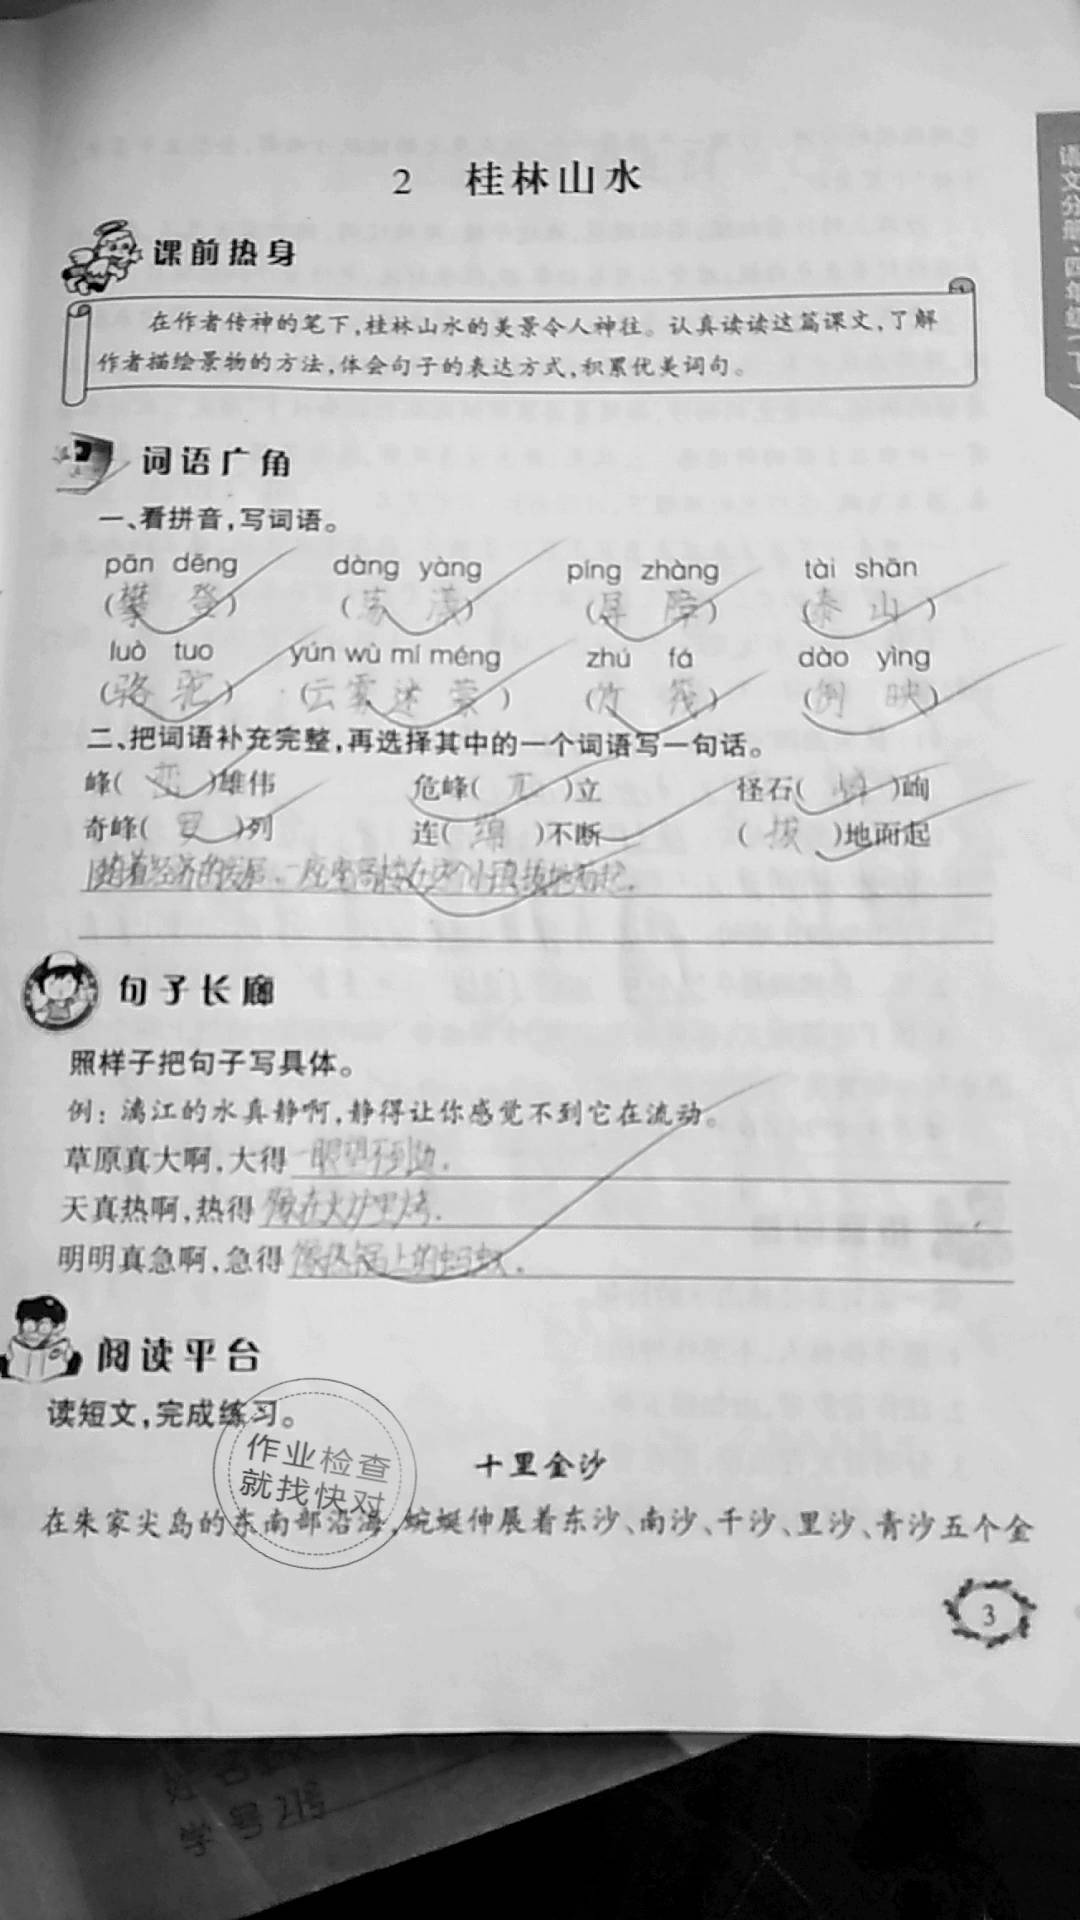 2 桂林山水
语文分册·四年级(下)
课前热身
在作者传神的笔下,桂林山水的美景令人神往。认真读读这篇课文,了解
作者描绘景物的方法,体会句子的表达方式,积累优美词句。
词语广角
一、看拼音,写词语。
pān dēng dàng yàng píng zhàng tài shān
(攀 登) (荡 漾) (屏 障) (泰 山)
luò tuo yún wù mí méng zhú fá dào yìng
(骆 驼) (云雾迷蒙) (竹 筏) (倒 映)
二、把词语补充完整,再选择其中的一个词语写一句话。
峰(峦)雄伟 危峰(兀)立 怪石(嶙)峋
奇峰(罗)列 连(绵)不断 (拔)地而起
随着经济的发展,一座座高楼在这个小镇拔地而起.
句子长廊
照样子把句子写具体。
例:漓江的水真静啊,静得让你感觉不到它在流动。
草原真大啊,大得一眼望不到边.
天真热啊,热得像在火炉里烤.
明明真急啊,急得像热锅上的蚂蚁.
阅读平台
读短文,完成练习。
作业检查
就找快对
十里金沙
在朱家尖岛的东南部沿海,蜿蜒伸展着东沙、南沙、千沙、里沙、青沙五个金
3
学号21号